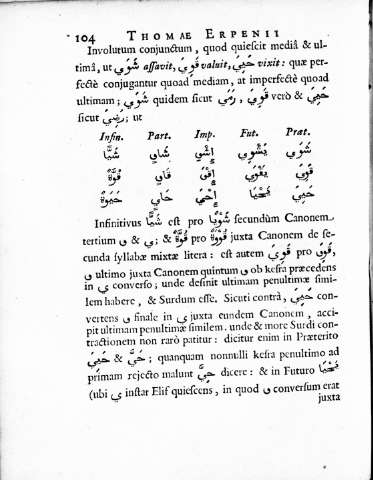 104 THOMAE ERPENII
Involutum conjunctum, quod quiescit mediâ & ul-
timâ, ut شَوَي assavit, قَوِيَ valuit, حَيِيَ vixit: quæ per-
fectè conjugantur quoad mediam, at imperfectè quoad
ultimam; شَوَي quidem sicut رَمَي, قَوِيَ verò & حَيِيَ
sicut رَضِيَ; ut
Infin. Part. Imp. Fut. Præt.
شَيًّا شَاوٍ إِشْوِ يَشْوِي شَوَي
قُوَّةً قَاوٍ إِقْوَ يَقْوَي قَوِيَ
حَيَوةً حَايٍ إِحْيَ يَحْيَا حَيِيَ
Infinitivus شَيًّا est pro شَوْيًا secundùm Canonem
tertium و & ي; & قُوَّةً pro قُوْوَةً juxta Canonem de se-
cunda syllabæ mixtæ litera: est autem قَوِيَ pro قَوِوَ,
و ultimo juxta Canonem quintum و ob kesra præcedens
in ي converso; unde desinit ultimam penultimæ simi-
lem habere, & Surdum esse. Sicuti contrà, حَيِيَ con-
vertens و finale in ي juxta eundem Canonem, acci-
pit ultimam penultimæ similem. unde & more Surdi con-
tractionem non rarò patitur: dicitur enim in Præterito
حَيِيَ & حَيَّ; quanquam nonnulli kesra penultimo ad
primam rejecto malunt حِيَّ dicere: & in Futuro يَحْيَا
(ubi ي instar Elif quiescens, in quod و conversum erat
juxta